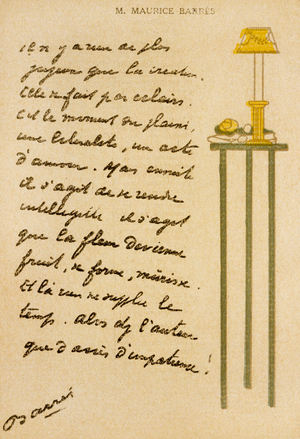 M. MAURICE-BARRÈS
il n'y a rien de plus
joyeux que la création.
Elle se fait par éclairs.
C'est le moment du plaisir,
une libéralité, un acte
d'amour. Mais ensuite
il s'agit de se rendre
intelligible il s'agit
que la fleur devienne
fruit, se forme, mûrisse.
Et là rien ne supplée le
temps. Alors dans l'auteur
que d'accès d'impatience!
Barrès